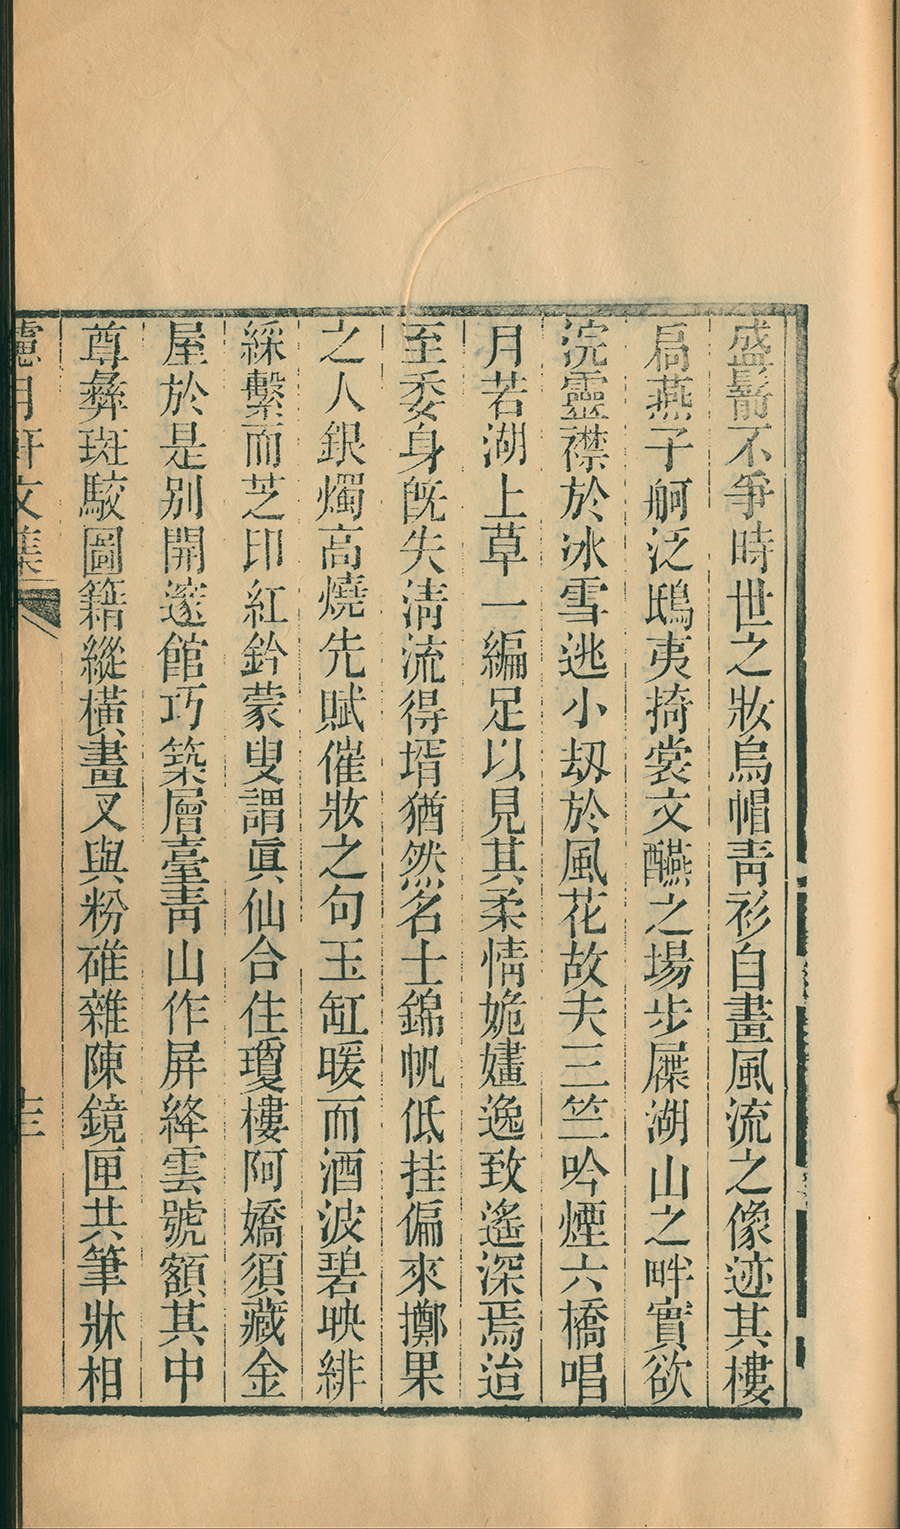 盛鬋不爭時世之妝烏帽靑衫自畫風流之像迹其樓
扃燕子舸泛鴟夷掎裳文醼之場步屧湖山之畔實欲
浣靈襟於冰雪逃小刼於風花故夫三竺吟煙六橋唱
月若湖上草一編足以見其柔情姽嫿逸致遙深焉迨
至委身旣失淸流得壻猶然名士錦帆低挂偏來擲果
之人銀燭高燒先賦催妝之句玉缸暖而酒波碧映緋
綵繫而芝印紅鈐蒙叟謂眞仙合住瓊樓阿嬌須藏金
屋於是别開邃館巧築層臺靑山作屏絳雲號額其中
尊彝斑駮圖籍縱橫畫叉與粉碓雜陳鏡匣共筆牀相
月軒文集